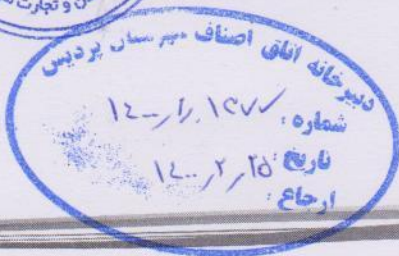 ن و تجارت
دبیرخانه اتاق اصناف شهرستان پردیس
شماره: ۱۴۰۰/ر/۱۳۷۷
تاریخ: ۱۴۰۰/۲/۲۵
ارجاع: